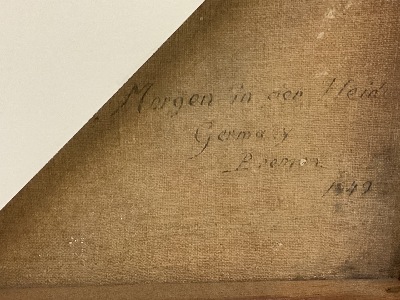 Morgen in der Heid
Germany
Bremen
1849